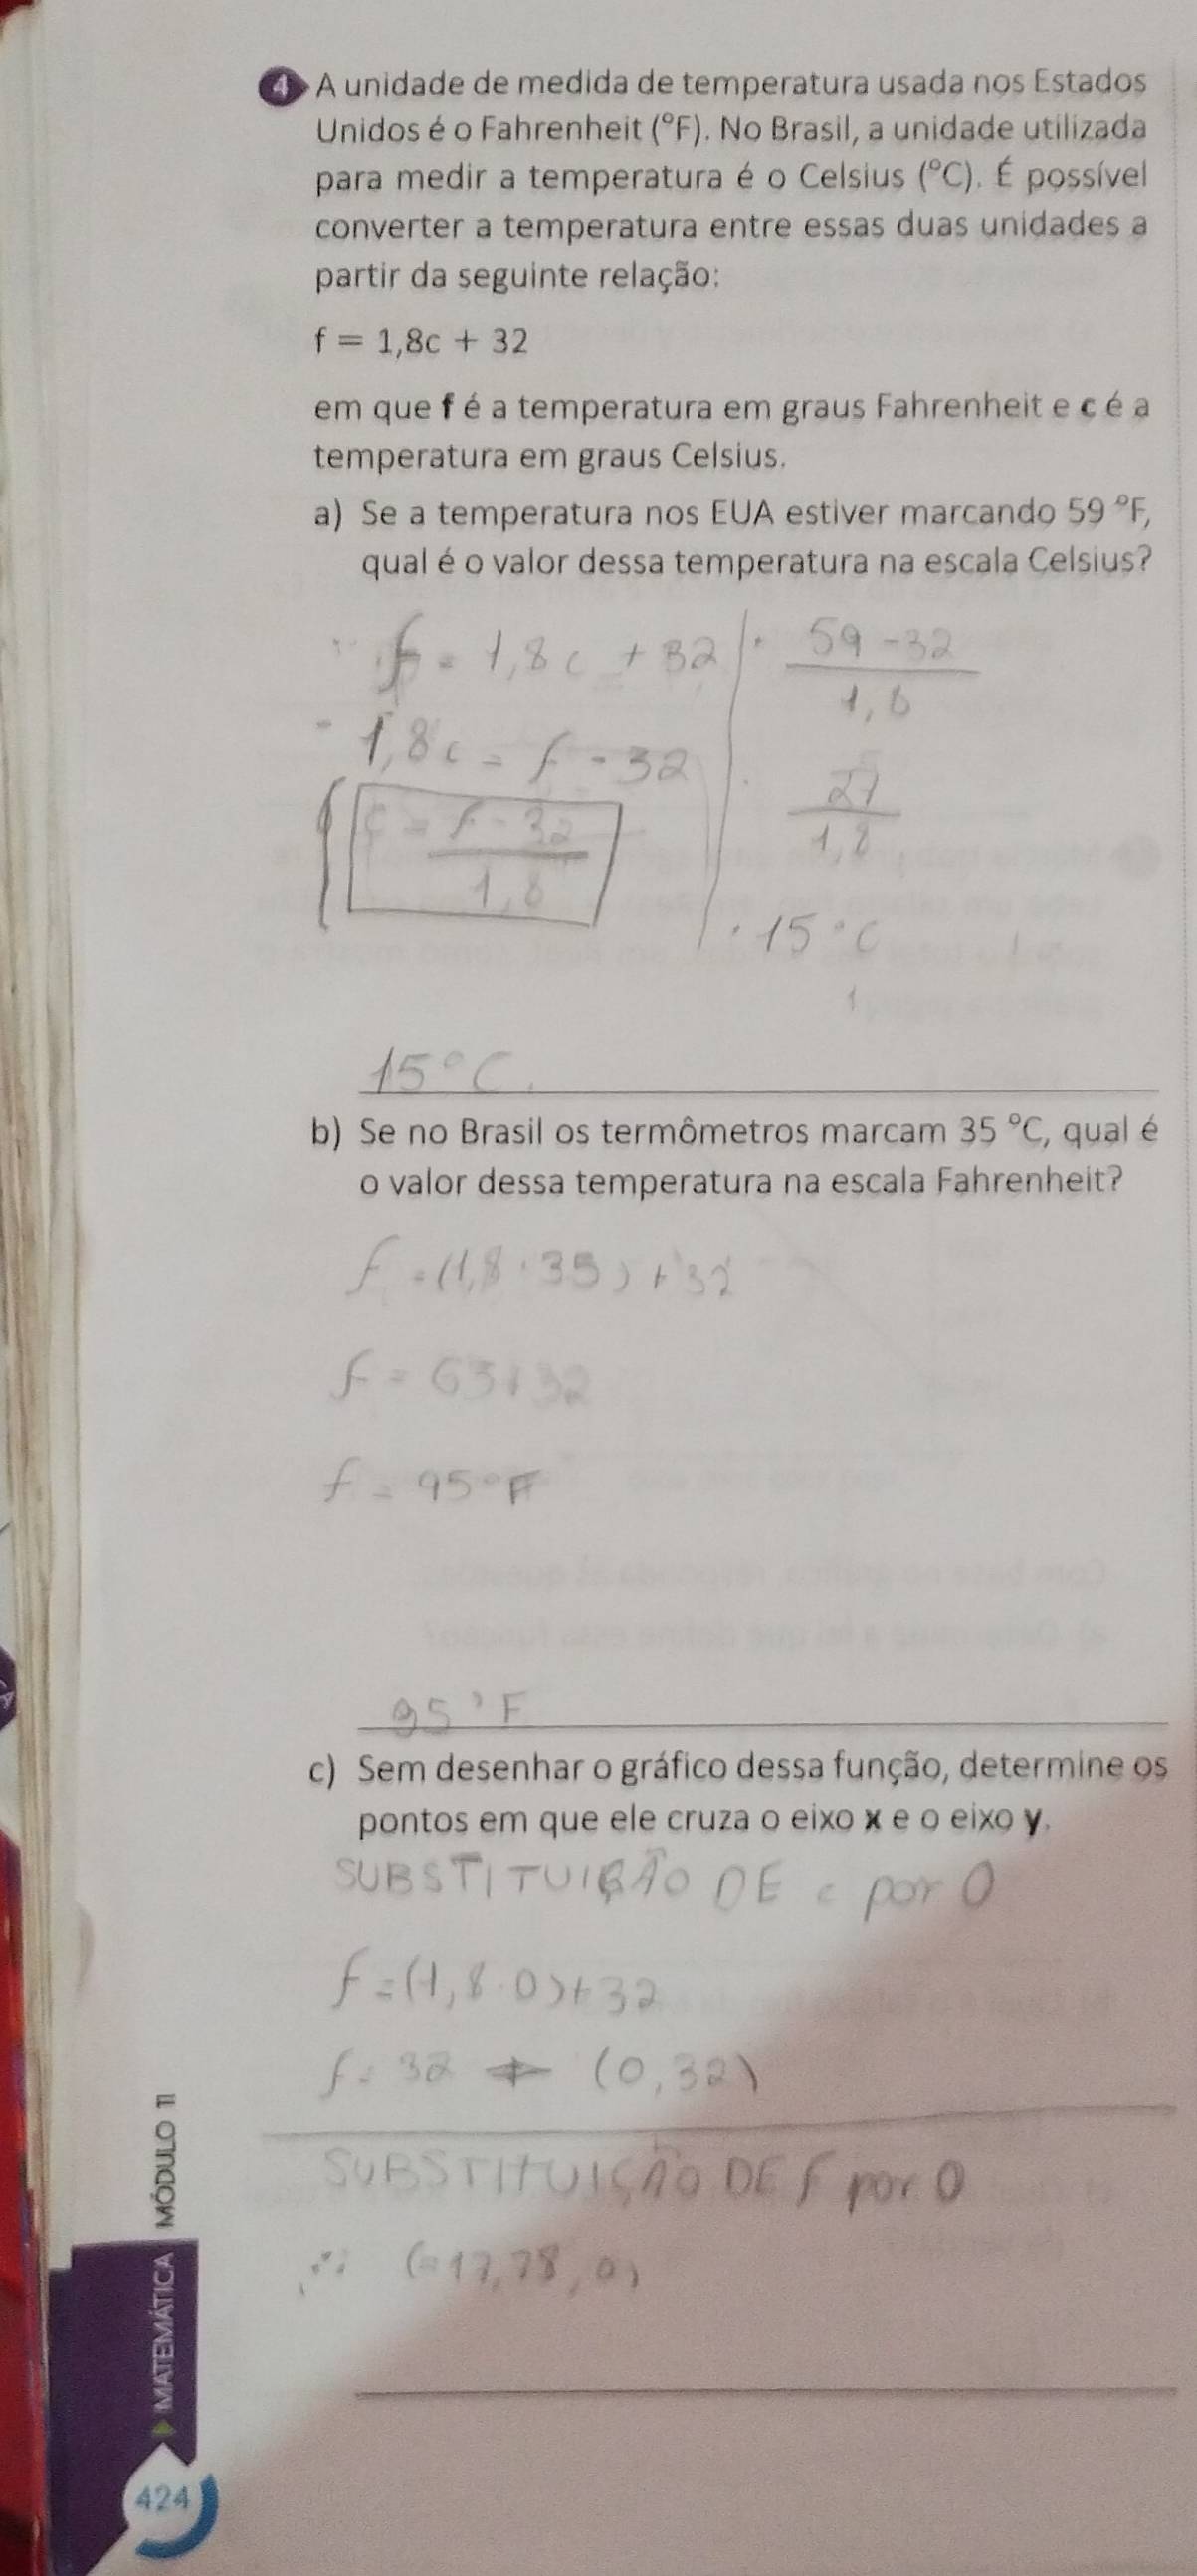 4 A unidade de medida de temperatura usada nos Estados
Unidos é o Fahrenheit (°F). No Brasil, a unidade utilizada
para medir a temperatura é o Celsius (°C). É possível
converter a temperatura entre essas duas unidades a
partir da seguinte relação:
f = 1,8c + 32
em que f é a temperatura em graus Fahrenheit e c é a
temperatura em graus Celsius.
a) Se a temperatura nos EUA estiver marcando 59 °F,
qual é o valor dessa temperatura na escala Celsius?
f = 1,8c + 32
1,8c = f - 32
c = f - 32
1,8
59 - 32
1,8
27
1,8
15°C
15°C.
b) Se no Brasil os termômetros marcam 35 °C, qual é
o valor dessa temperatura na escala Fahrenheit?
f = (1,8 · 35) + 32
f = 63 + 32
f = 95°F
95°F
c) Sem desenhar o gráfico dessa função, determine os
pontos em que ele cruza o eixo x e o eixo y.
SUBSTITUIÇÃO DE c por 0
f = (1,8 · 0) + 32
f = 32 → (0,32)
SUBSTITUIÇÃO DE f por 0
∴ (-17,78, 0)
MATEMÁTICA MÓDULO 11
424